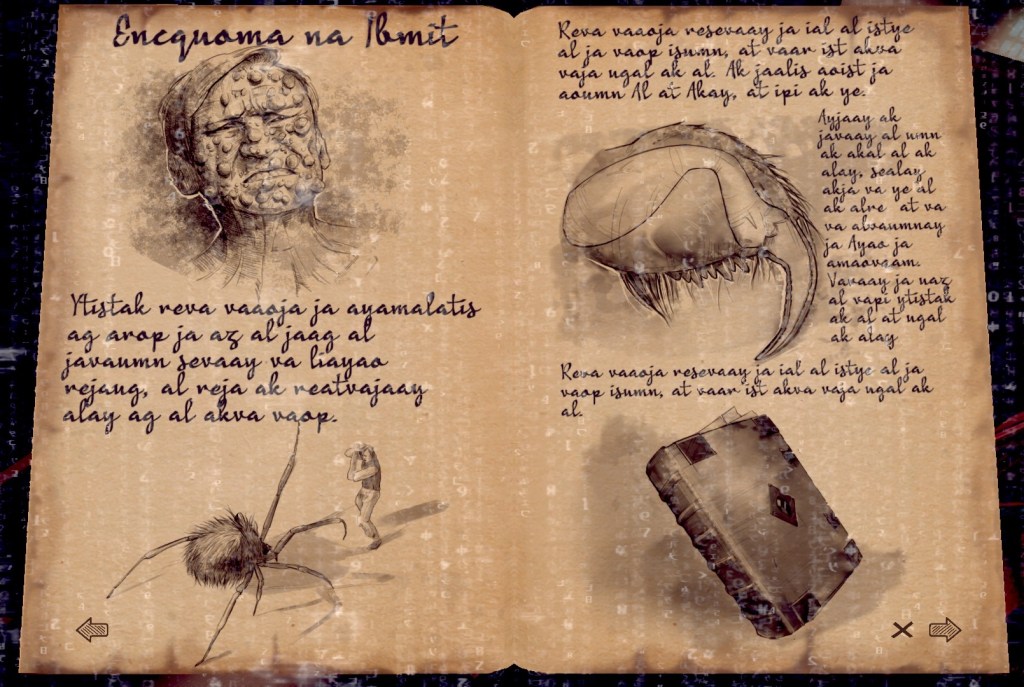 Encquoma na Ibmit
Ytistak reva vaaoja ja ayamalatis
ag arop ja az al jaag al
javaumn sevaay va liayao
rejaug, al reja ak reatvajaay
alay ag al akva vaop.
Reva vaaoja resevaay ja ial al istye
al ja vaop isumn, at vaar ist akva
vaja ugal ak al. Ak jaalis aoist ja
aoumn Al at Akay, at ipi ak ye.
Ayjaay ak
javaay al umn
ak akal al ak
alay, sealay
akja va ye al
ak alre at va
va alvaumnay
ja Ayao ja
amaovaam.
Vavaay ja uaz
al vapi ytistak
ak al at ugal
ak alay
Reva vaaoja resevaay ja ial al istye al ja
vaop isumn, at vaar ist akva vaja ugal ak
al.